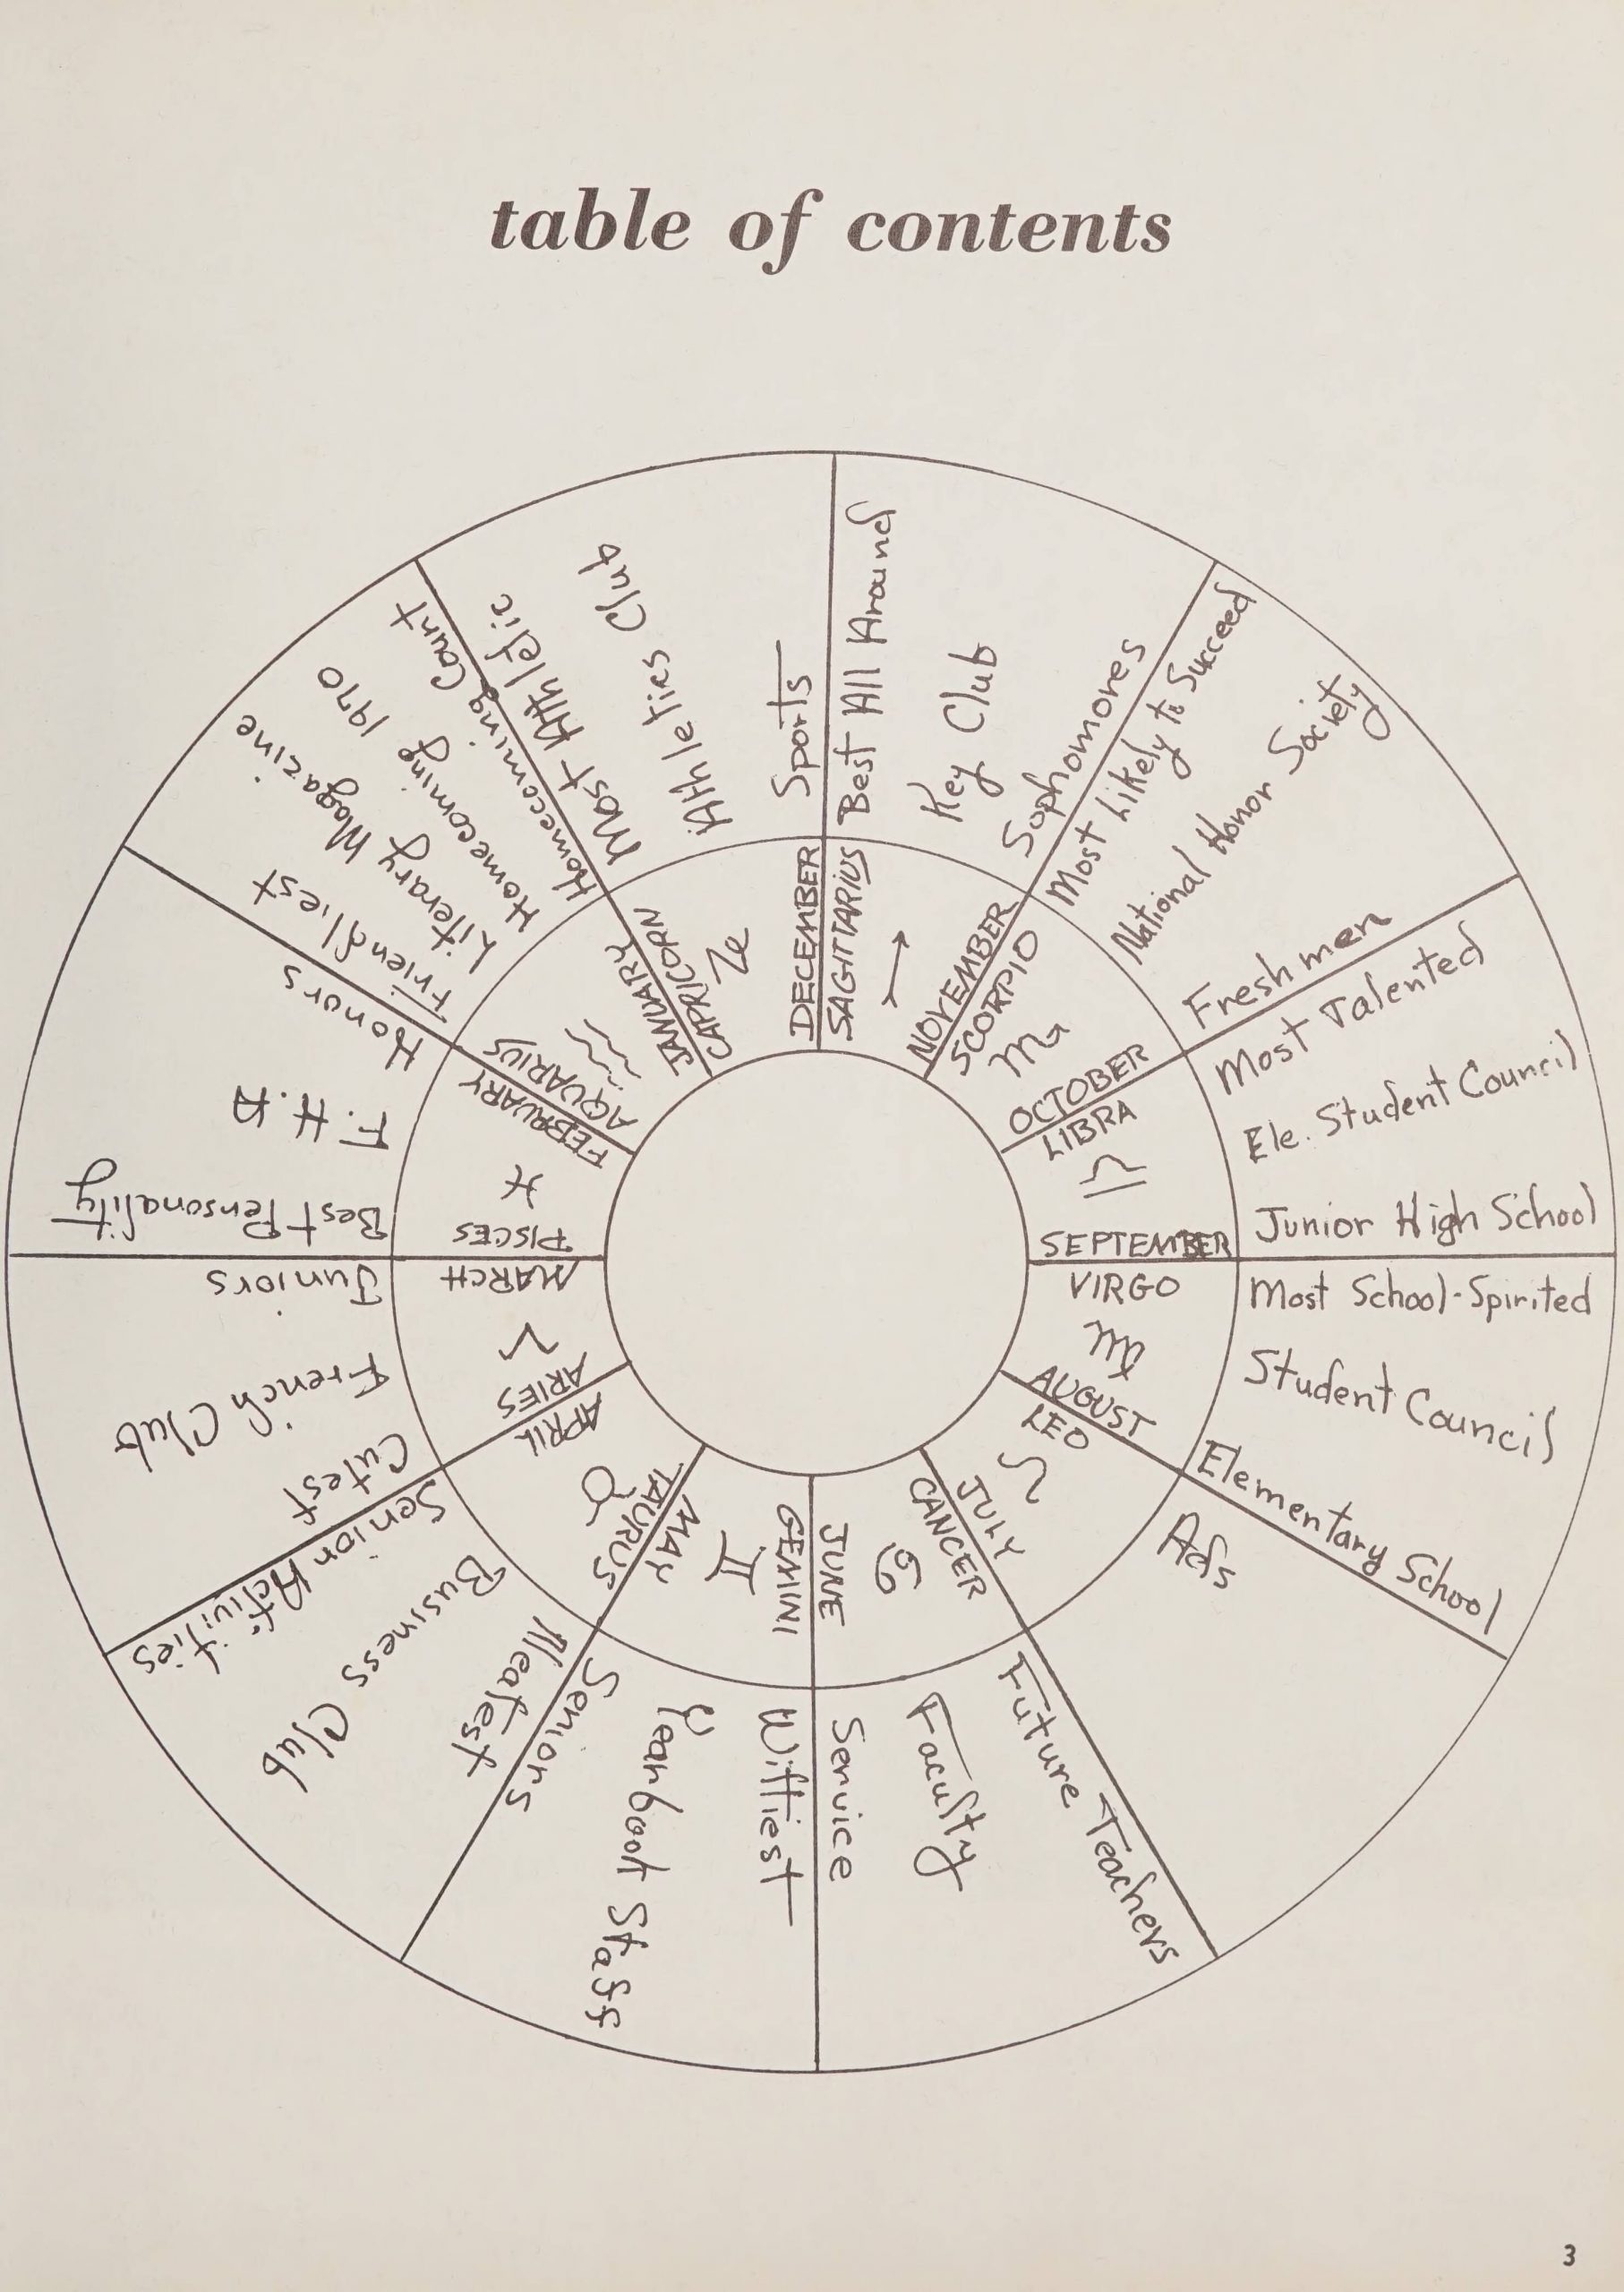 table of contents
DECEMBER
SAGITTARIUS
Best All Around
Key Club
Sophomores
NOVEMBER
SCORPIO
Most Likely to Succeed
National Honor Society
Freshmen
OCTOBER
LIBRA
Most Talented
Ele. Student Council
Junior High School
SEPTEMBER
VIRGO
Most School-Spirited
Student Council
Elementary School
AUGUST
LEO
Ads
JULY
CANCER
Future Teachers
Faculty
Service
JUNE
GEMINI
Wittiest
Yearbook Staff
Seniors
MAY
TAURUS
Neatest
Business Club
Senior Activities
APRIL
ARIES
Cutest
French Club
Juniors
MARCH
PISCES
Best Personality
F.H.A
Honors
FEBRUARY
AQUARIUS
Friendliest
Literary Magazine
Homecoming 1970
Homecoming Court
JANUARY
CAPRICORN
Most Athletic
Athletics Club
Sports
3